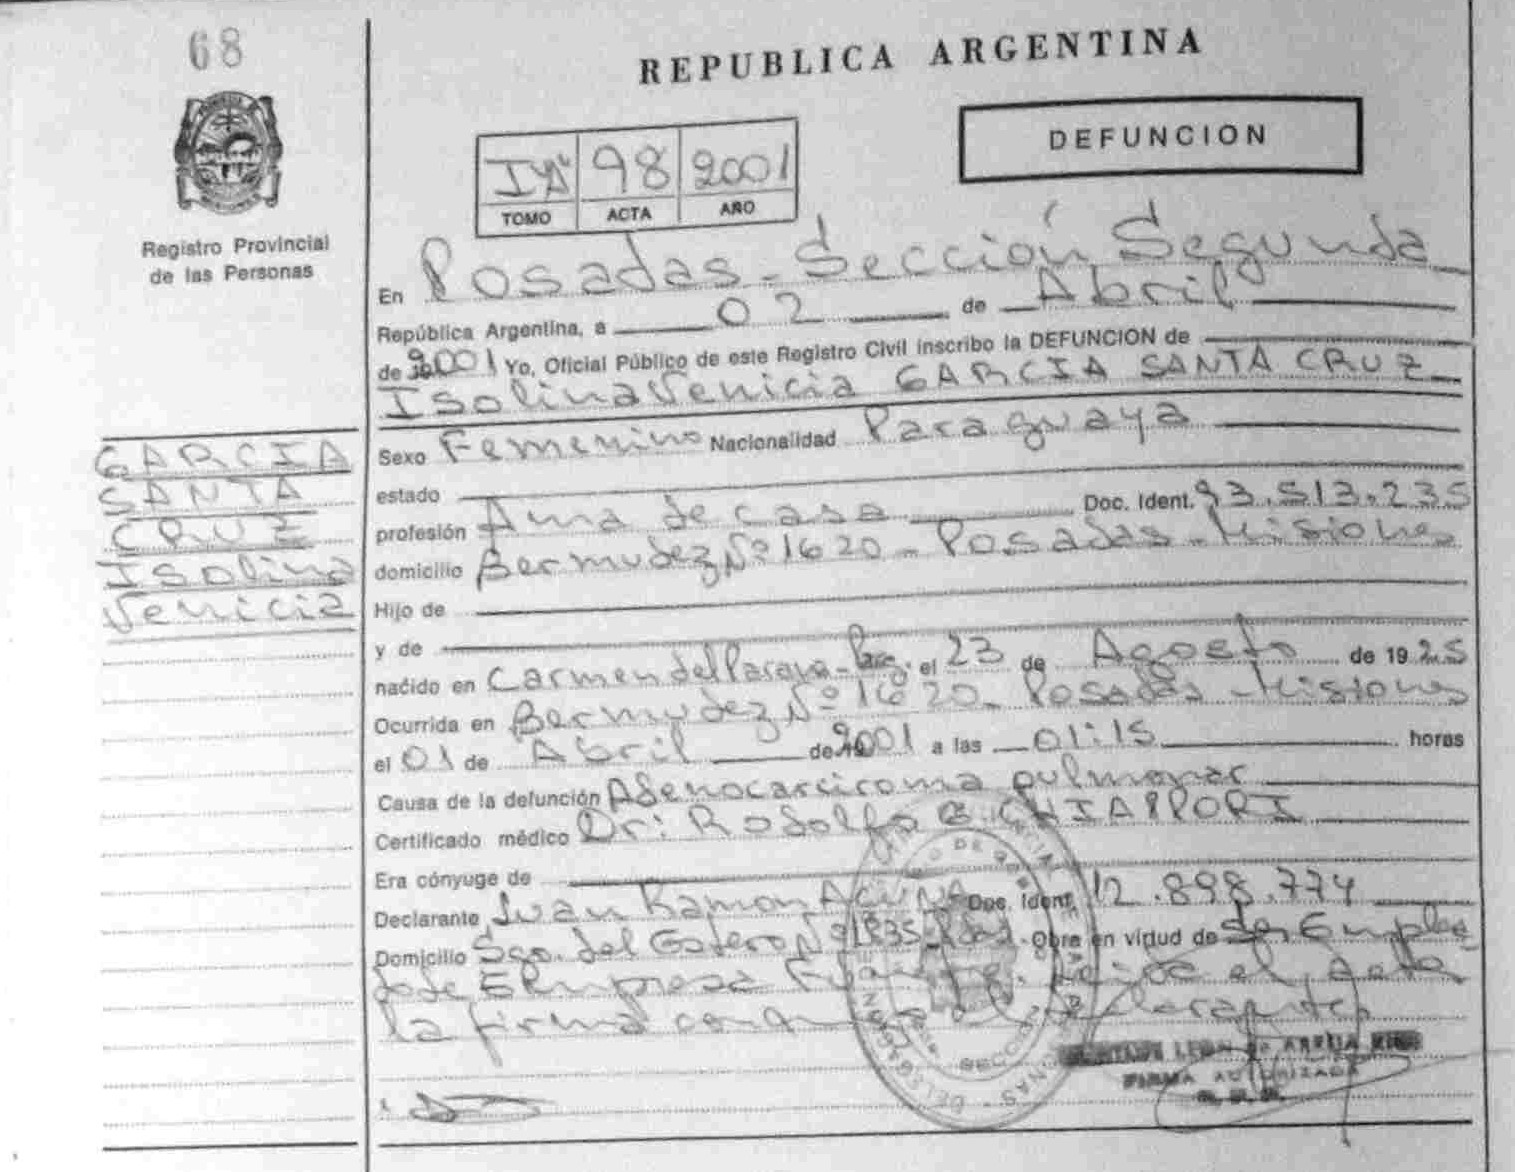 68
REPUBLICA ARGENTINA
DEFUNCION
98 2001
TOMO ACTA AÑO
Registro Provincial
de las Personas
En Posadas - Sección Segunda
República Argentina, a 02 de Abril
de 2001 Yo, Oficial Público de este Registro Civil inscribo la DEFUNCION de
Isolina Venicia GARCIA SANTA CRUZ
GARCIA
SANTA
CRUZ
Isolina
Venicia
Sexo Femenino Nacionalidad Paraguaya
estado
profesión Ama de casa Doc. Ident. 93.513.235
domicilio Bermudez Nº 1620 - Posadas - Misiones
Hijo de
y de
nacido en Carmen del Parana - el 23 de Agosto de 1925
Ocurrida en Bermudez Nº 1620 - Posadas - Misiones
el 01 de Abril de 2001 a las 01:15 horas
Causa de la defunción Adenocarciroma pulmonar
Certificado médico Dr: Rodolfo CHIAPPORI
Era cónyuge de
Declarante Juan Ramon ACUÑA Doc. Ident. 12.898.774
Domicilio Sgo. del Estero Nº Obra en virtud de Ser Emplea
do de Empresa el Acta
la firma el declarante.
FIRMA AUTORIZADA